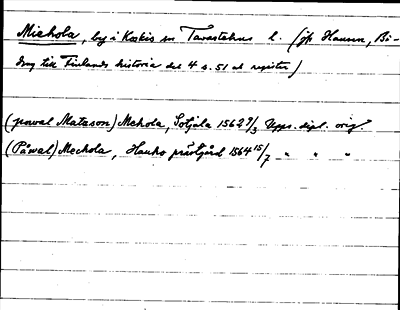 Michola, by i Koskis sn Tavastehus l. (jfr Hausen, Bi-
drag till Finlands historia del 4 s. 51 ok register)
(pawal Matzson) Mehola, Sotjala 1562 9/3 Upps. dipl. orig.
(Påwal) Mechola, Hauho prästgård 1564 15/7 " " "